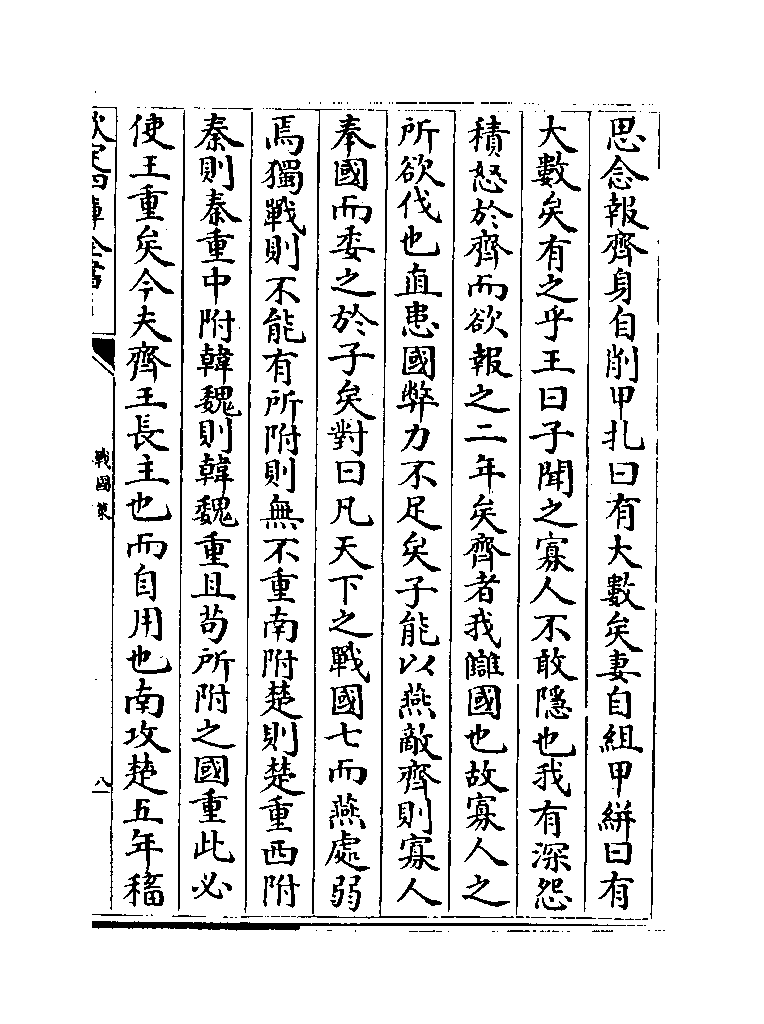 思念報齊身自削甲扎曰有大數矣妻自組甲絣曰有
大數矣有之乎王曰子聞之寡人不敢隱也我有深怨
積怒於齊而欲報之二年矣齊者我讎國也故寡人之
所欲伐也直患國弊力不足矣子能以燕敵齊則寡人
奉國而委之於子矣對曰凡天下之戰國七而燕處弱
焉獨戰則不能有所附則無不重南附楚則楚重西附
秦則秦重中附韓魏則韓魏重且苟所附之國重此必
使王重矣今夫齊王長主也而自用也南攻楚五年稸
欽定四庫全書
戰國策
八